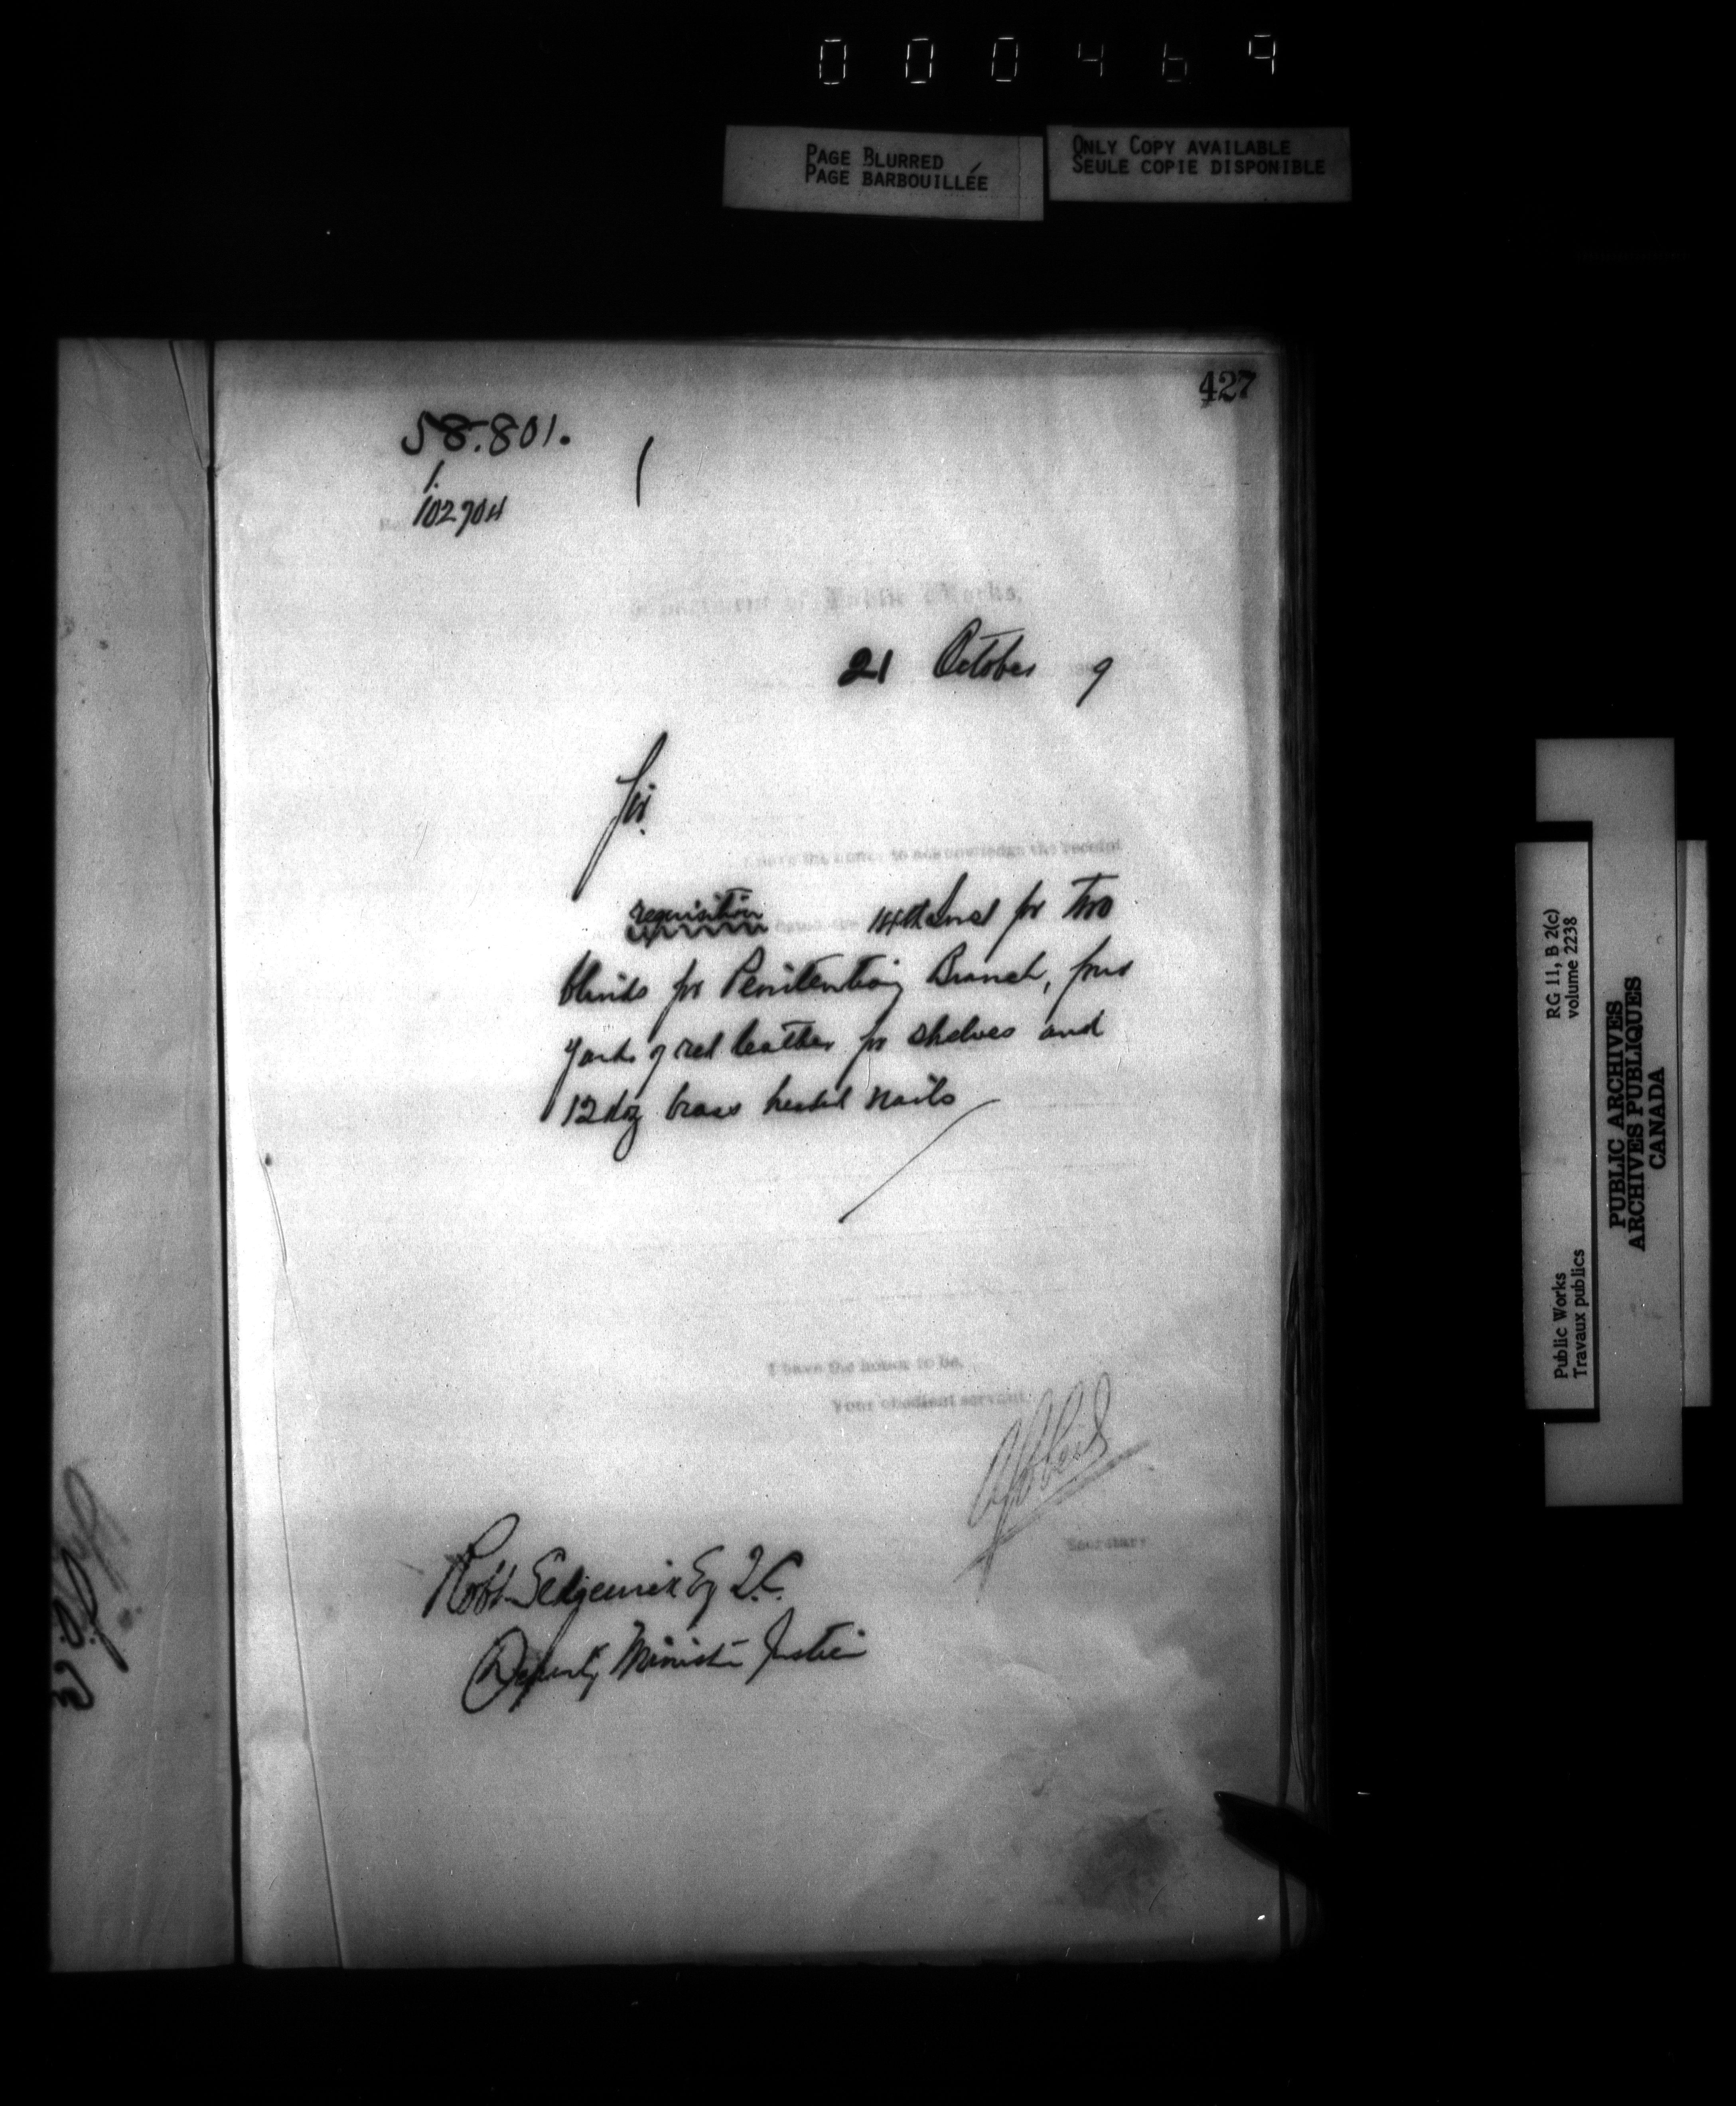 000469
PAGE BLURRED
PAGE BARBOUILLÉE
ONLY COPY AVAILABLE
SEULE COPIE DISPONIBLE
427
58.801.
1.
102704
Department of Public Works,
21 October 9
Sir.
I have the honor to acknowledge the receipt
requisition dated the 14th Inst for two
blinds for Penitentiary Branch, four
yards of red leather for shelves and
12 doz brass headed nails
I have the honor to be,
Your obedient servant,
Secretary
Robt Sedgewick Esq Q.C.
Deputy Minister Justice
RG 11, B 2(c)
volume 2238
Public Works
Travaux publics
PUBLIC ARCHIVES
ARCHIVES PUBLIQUES
CANADA